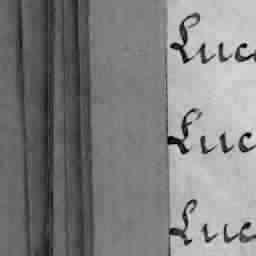 Luc
Luc
Luc